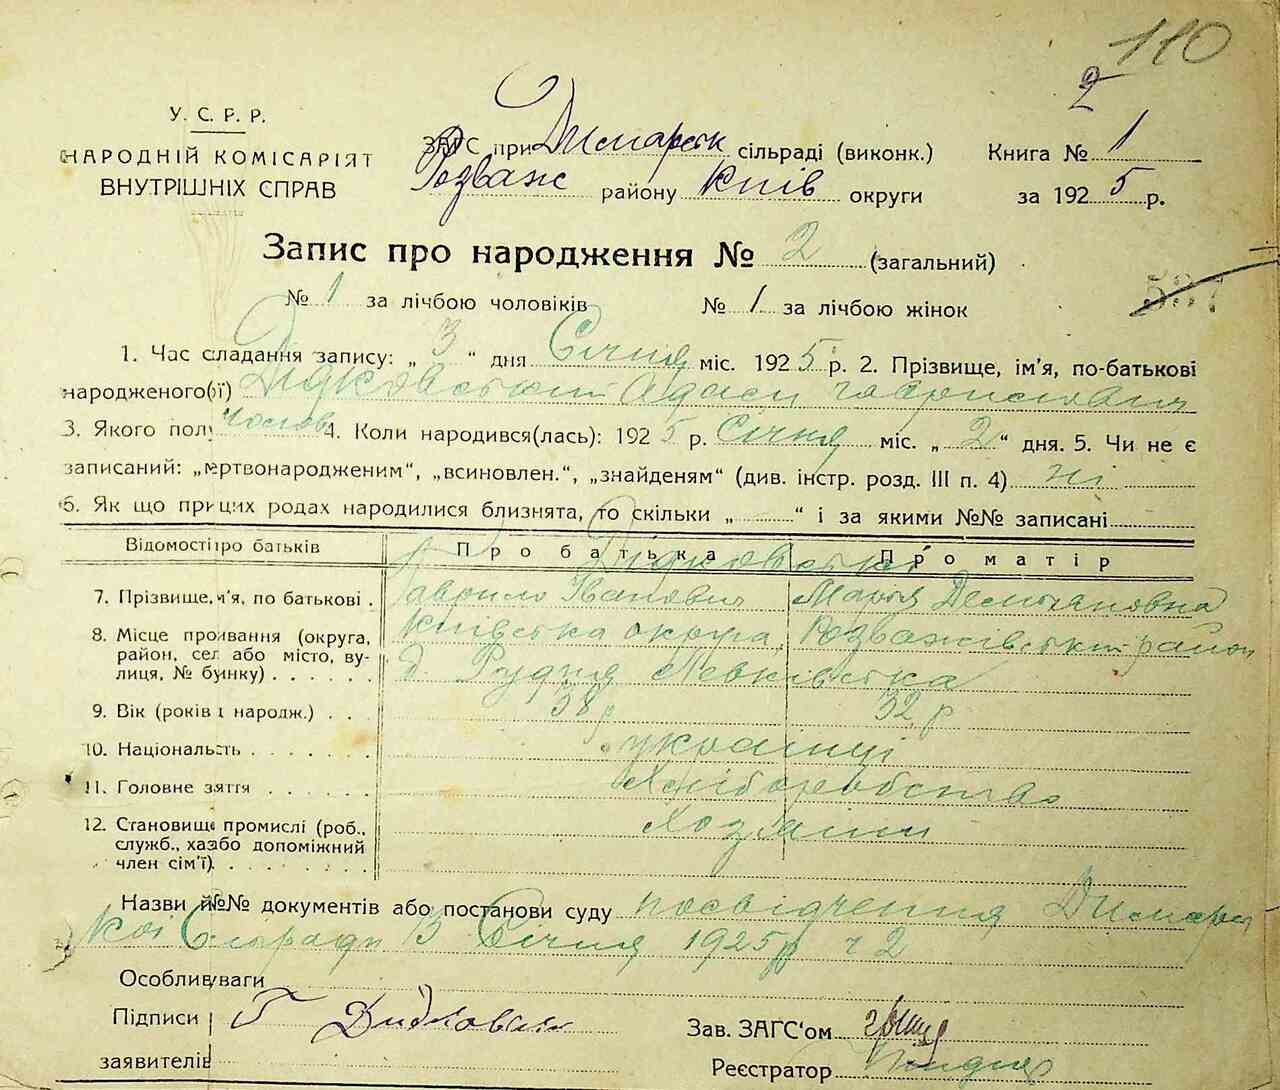 110
2
У. С. Р. Р.
НАРОДНІЙ КОМІСАРІЯТ
ВНУТРІШНІХ СПРАВ
ЗАГС при Димарськ сільраді (виконк.) Книга № 1
Розваж району Київ округи за 1925 р.
Запис про народження № 2 (загальний)
№ 1 за лічбою чоловіків № 1 за лічбою жінок
537
1. Час складання запису: „3“ дня Січня міс. 1925 р. 2. Прізвище, ім'я, по-батькові
народженого(ої) Дідковський Адам Гаврилович
3. Якого полу чолов 4. Коли народився(лась): 1925 р. Січня міс. „2“ дня. 5. Чи не є
записаний: „мертвонародженим“, „всиновлен.“, „знайденям“ (див. інстр. розд. III п. 4) ні
6. Як що при цих родах народилися близнята, то скільки „ “ і за якими №№ записані
Відомості про батьків Про батька Про матір
Дідковські
7. Прізвище, ім'я, по батькові . Гаврило Іванович Марія Демʼяновна
8. Місце проживання (округа, Київська округа, Розважівський район
район, село або місто, ву-
лиця, № будинку) . . . . . . д. Рудня Левківська
9. Вік (років і народж.) . . . 38 р 32 р
10. Національність . . . . . . українці
11. Головне заняття . . . . . . Хліборобство
12. Становище в промислі (роб.,
служб., хазяїн або допоміжний
член сім'ї) . . . . . . . .
Назви й №№ документів або постанови суду посвідчення Димарсь
кої Сільради 3 Січня 1925 р ч 2
Особливі уваги
Підписи Г Дидковский Зав. ЗАГС'ом
заявителів Реєстратор